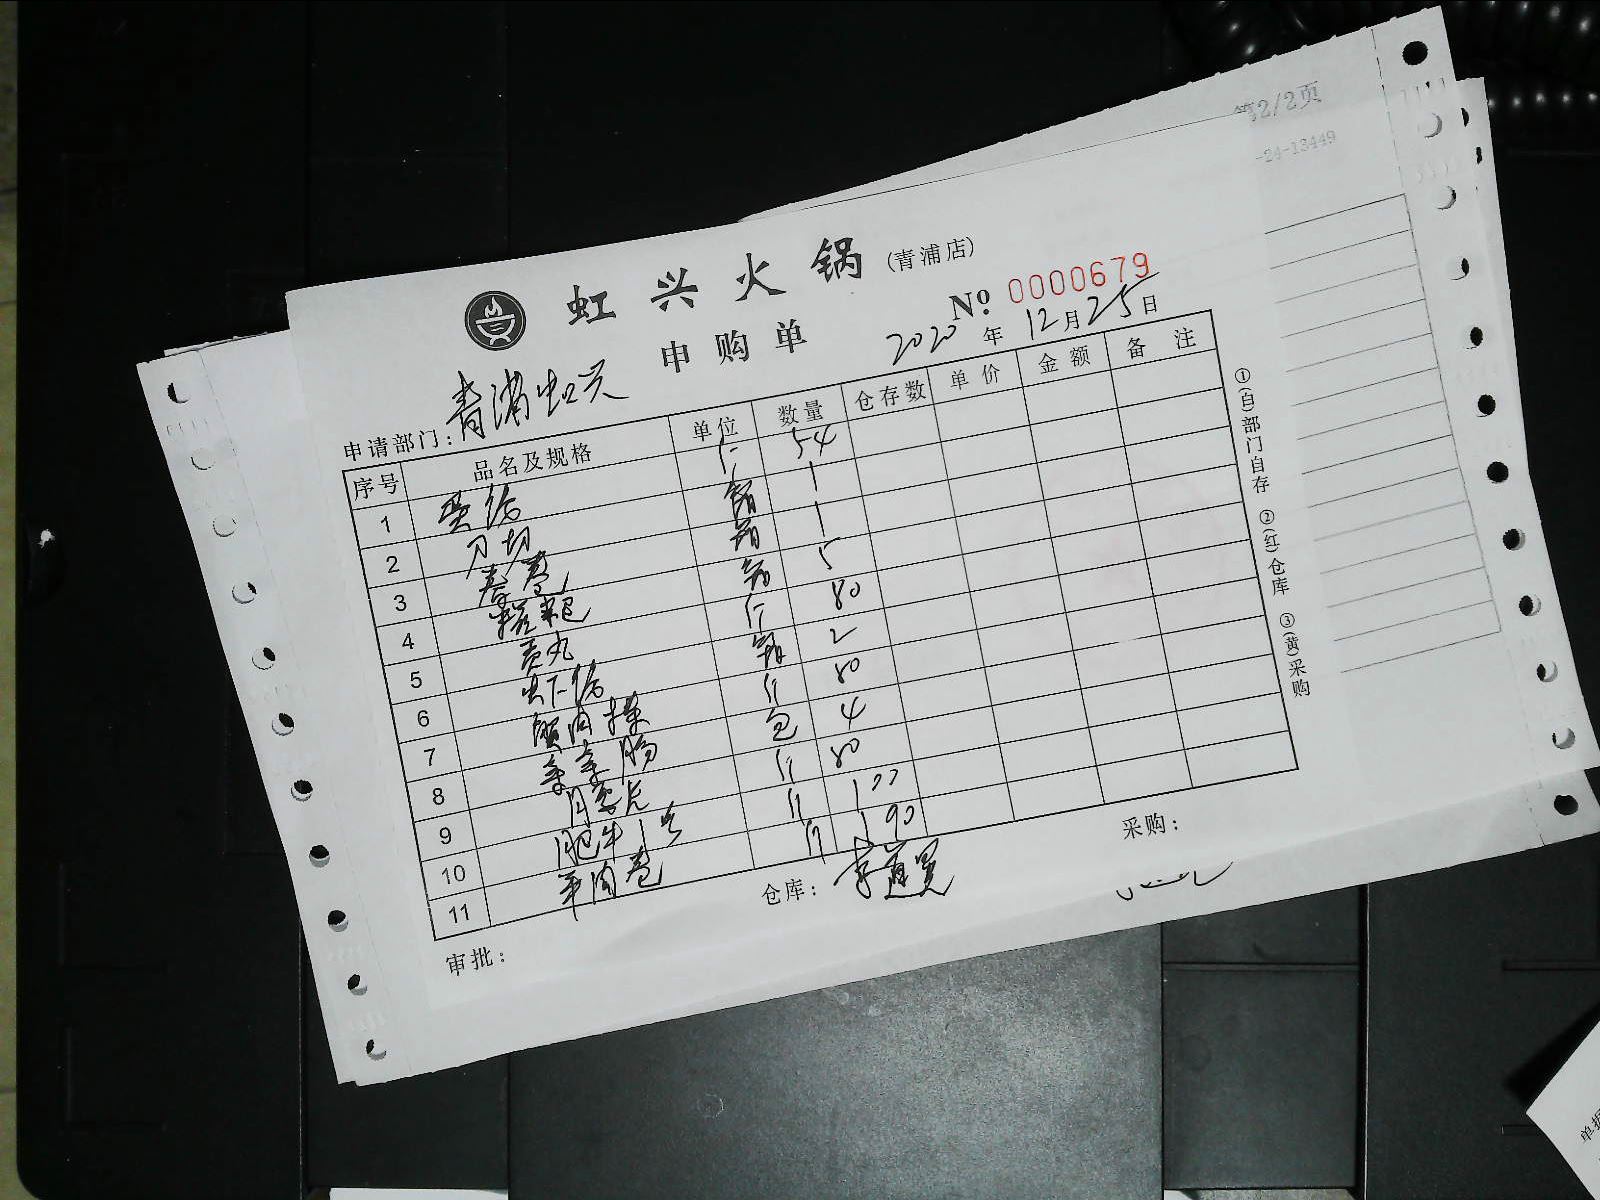 第2/2页
-24-13449
虹兴火锅(青浦店)
申购单
№ 0000679
2020年12月25日
申请部门:青浦虹兴
序号 品名及规格 单位 数量 仓存数 单价 金额 备注
1 蛋饺 斤 54
2 刀切 箱 1
3 春卷 箱 1
4 糍粑 5
5 贡丸 斤 80
6 虾饺 箱 2
7 蟹肉棒 斤 80
8 亲亲肠 包 4
9 斤 80
10 肥牛1号 斤 100
11 羊肉卷 斤 190
审批: 仓库: 采购:
①(白)部门自存 ②(红)仓库 ③(黄)采购
单据